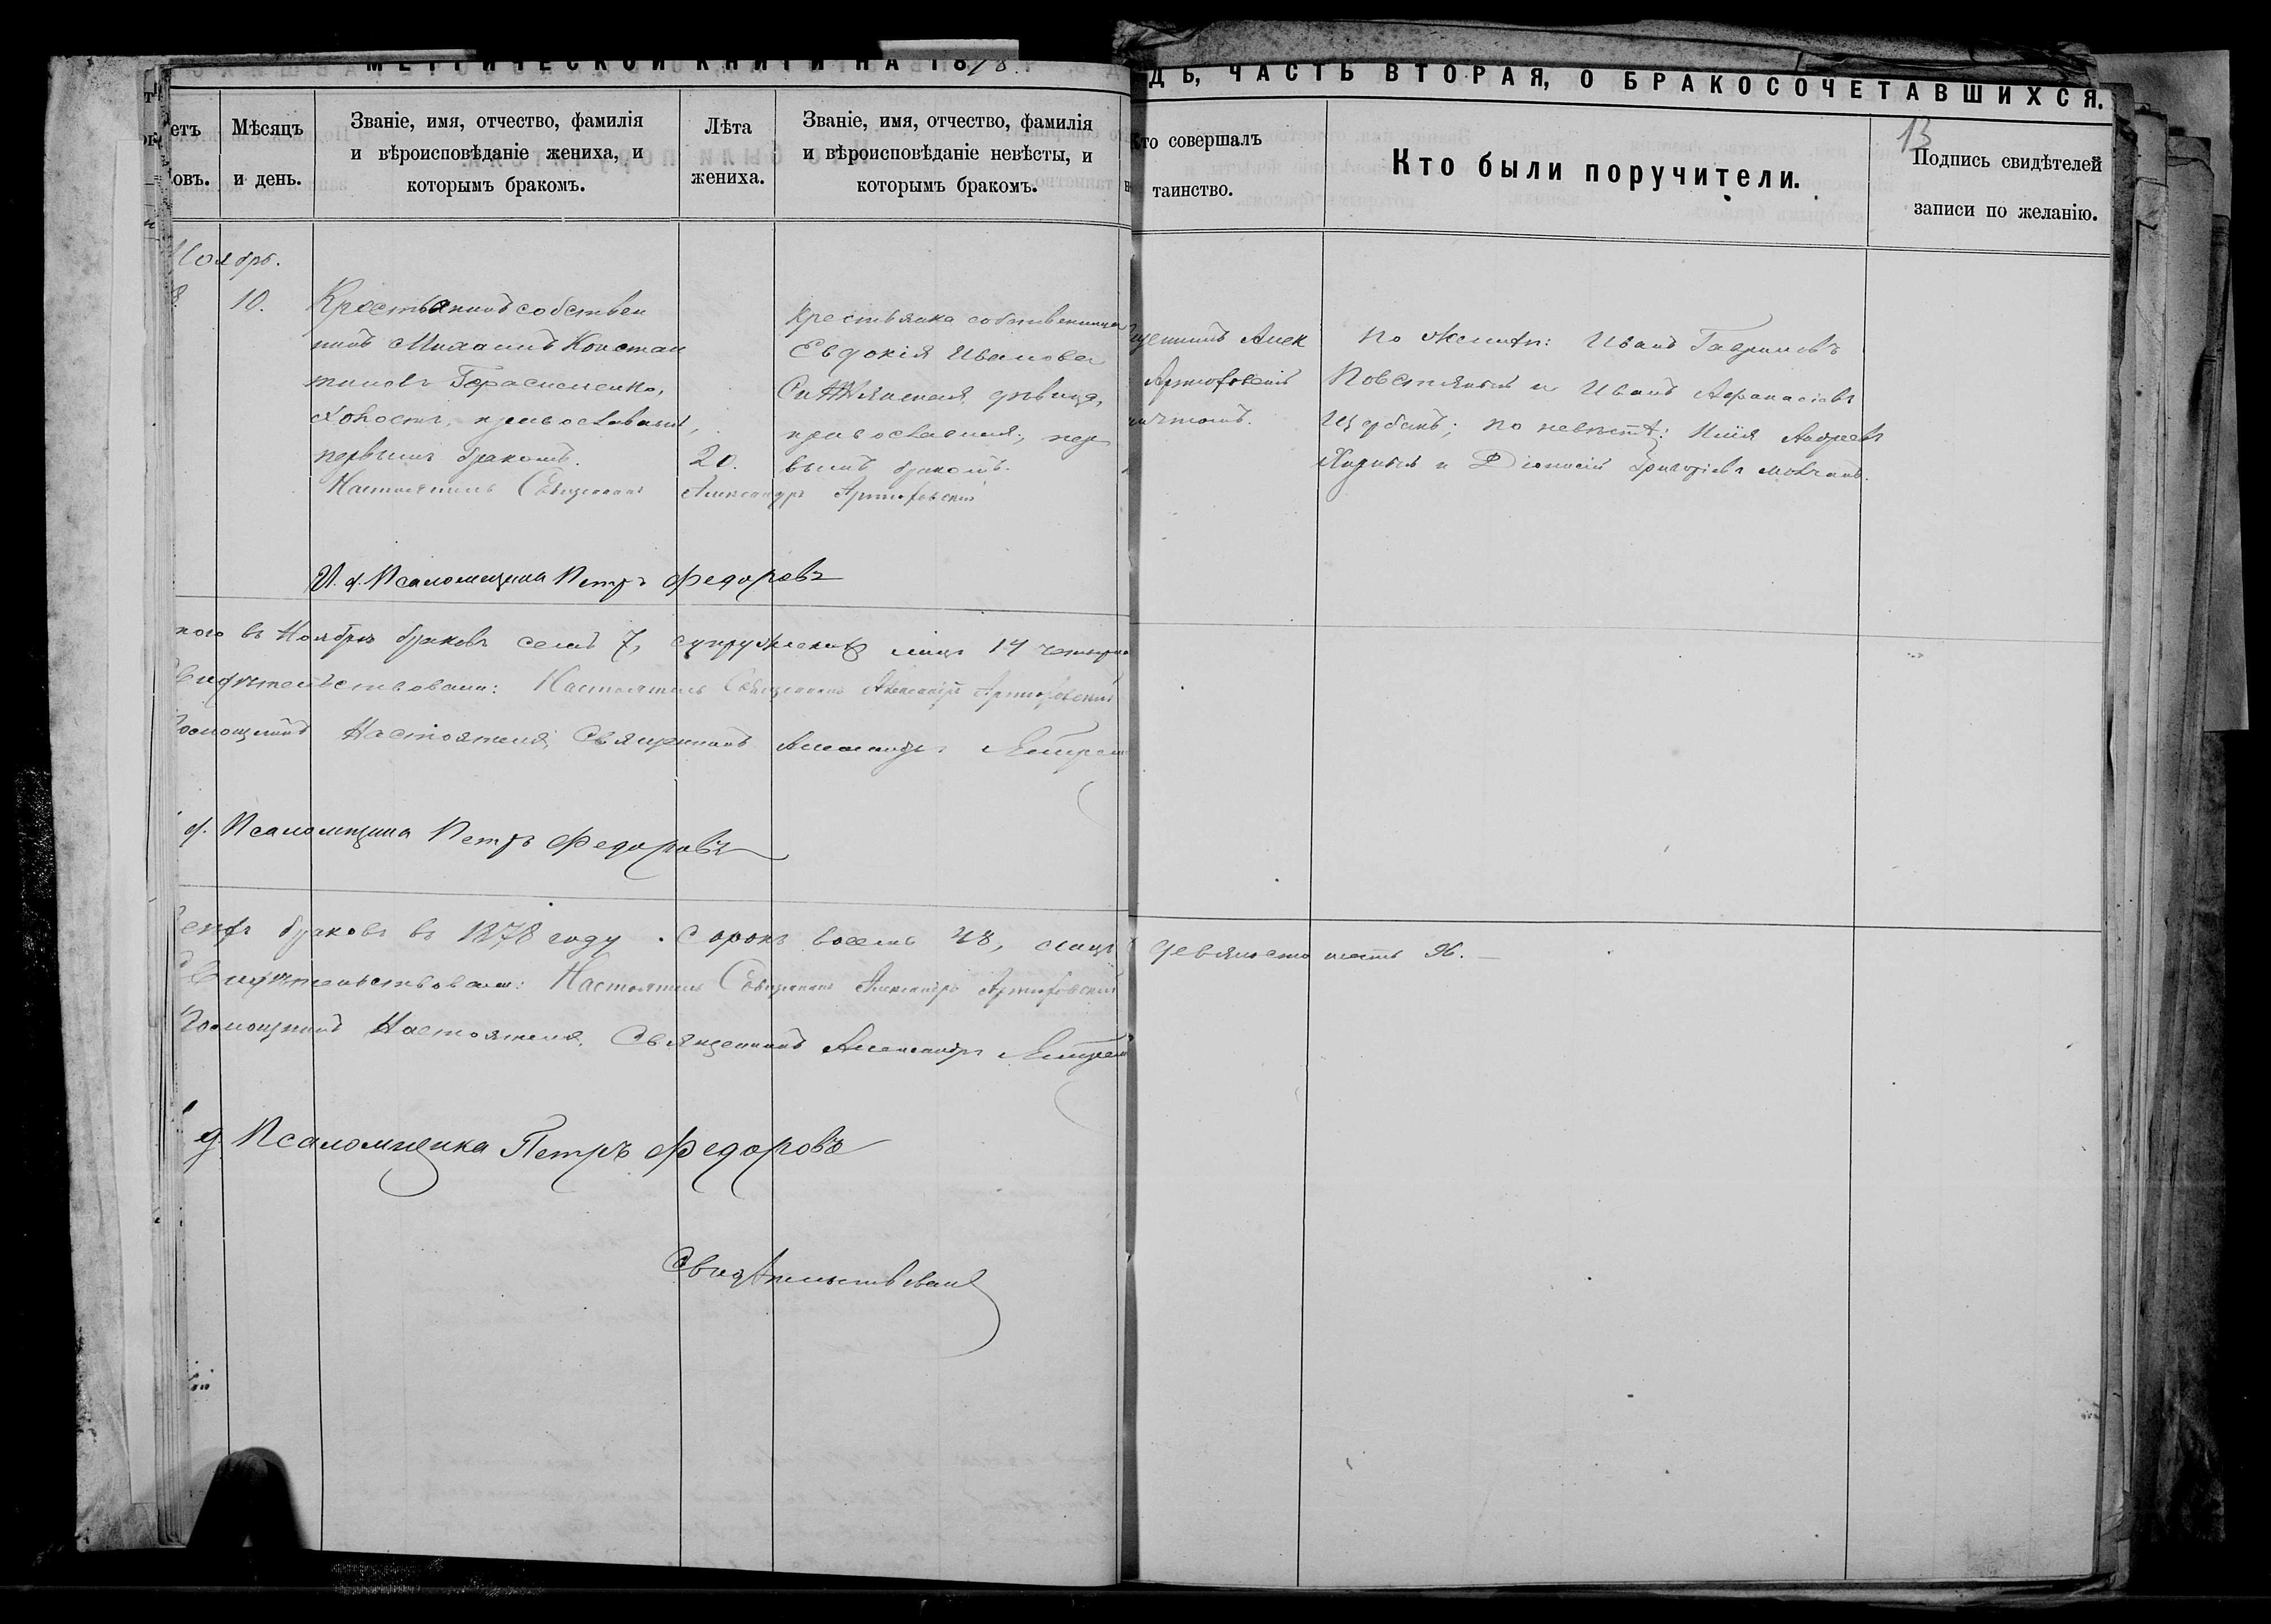 МЕТРИЧЕСКОЙ КНИГИ НА 1878
ДѢ, ЧАСТЬ ВТОРАЯ, О БРАКОСОЧЕТАВШИХСЯ.
13
етъ
овъ.
Мѣсяцъ
и день.
Званіе, имя, отчество, фамилія
и вѣроисповѣданіе жениха, и
которымъ бракомъ.
Лѣта
жениха.
Званіе, имя, отчество, фамилія
и вѣроисповѣданіе невѣсты, и
которымъ бракомъ.
Кто совершалъ
таинство.
Кто были поручители.
Подпись свидѣтелей
записи по желанію.
Ноябрь.
8. 10.
Крестьянинъ собствен
никъ Михаилъ Констан
тиновъ Герасименко,
холостъ, православный,
первымъ бракомъ.
20.
Крестьянка собственница
Евдокія Иванова
дѣвица,
православная, пер
вымъ бракомъ.
щенникъ Алек
Артюховскій
По женихѣ: Иванъ Гавриловъ
и Иванъ Афанасіевъ
Щербакъ; по невѣстѣ: Илія Андреевъ
и Діонисій Григоріевъ Мовчанъ.
Настоятель Священникъ Александръ Артюховскій
И. д. Псаломщика Петръ Федоровъ
ного въ Ноябрѣ браковъ семь 7, супружескихъ лицъ 14 четырна
Свидѣтельствовали: Настоятель Священникъ Александръ Артюховскій
Помощникъ Настоятеля, Священникъ Александръ
д. Псаломщика Петръ Федоровъ
браковъ въ 1878 году сорокъ восемь 48, лицъ девяносто шесть 96.
Свидѣтельствовали: Настоятель Священникъ Александръ Артюховскій
Помощникъ Настоятеля, Священникъ Александръ
д. Псаломщика Петръ Федоровъ
Свидѣтельствовалъ